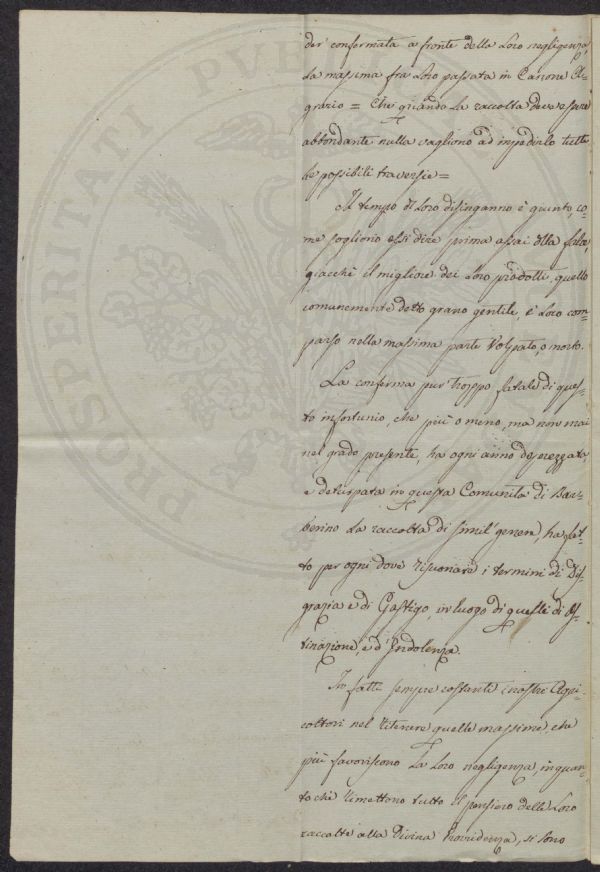 der confermata a fronte della Loro negligenza,
La massima fra Loro passata in Canone A-
grario = Che quando La raccolta deve essere
abbondante nulla vagliono ad impedirlo tutte
le possibili traversie =
Il tempo di Loro disinganno è giunto, co-
me sogliono essi dire prima assai della falce,
giacchè il migliore dei Loro prodotti, quello
comunemente detto grano gentile, è Loro com-
parso nella massima parte Volpato, o morto.
La conferma pur troppo fatale di ques-
to infortunio, che più o meno, ma non mai
nel grado presente, ha ogni anno deprezzata,
e deturpata in questa Comunità di Bar-
berino La raccolta di simil genere, ha fat-
to per ogni dove risuonare i termini di Dis-
grazia e di Gastigo, in luogo di quelli di Os-
tinazione, e d'Indolenza.
In fatti sempre costanti i nostri Agri-
coltori nel ritenere quelle massime, che
più favoriscono La Loro negligenza, in quan-
to chè rimettono tutto il pensiero delle Loro
raccolte alla Divina Provvidenza, si sono
PROSPERITATI PVBL